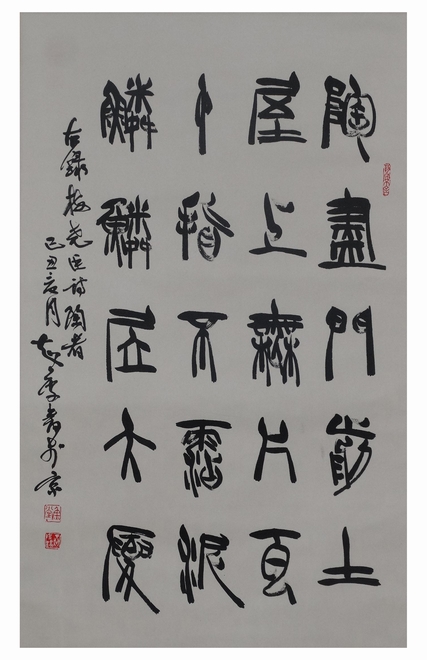 陶盡門前土
屋上無片瓦
十指不霑泥
鱗鱗居大廈
右錄梅堯臣詩陶者
己丑 月 書於京